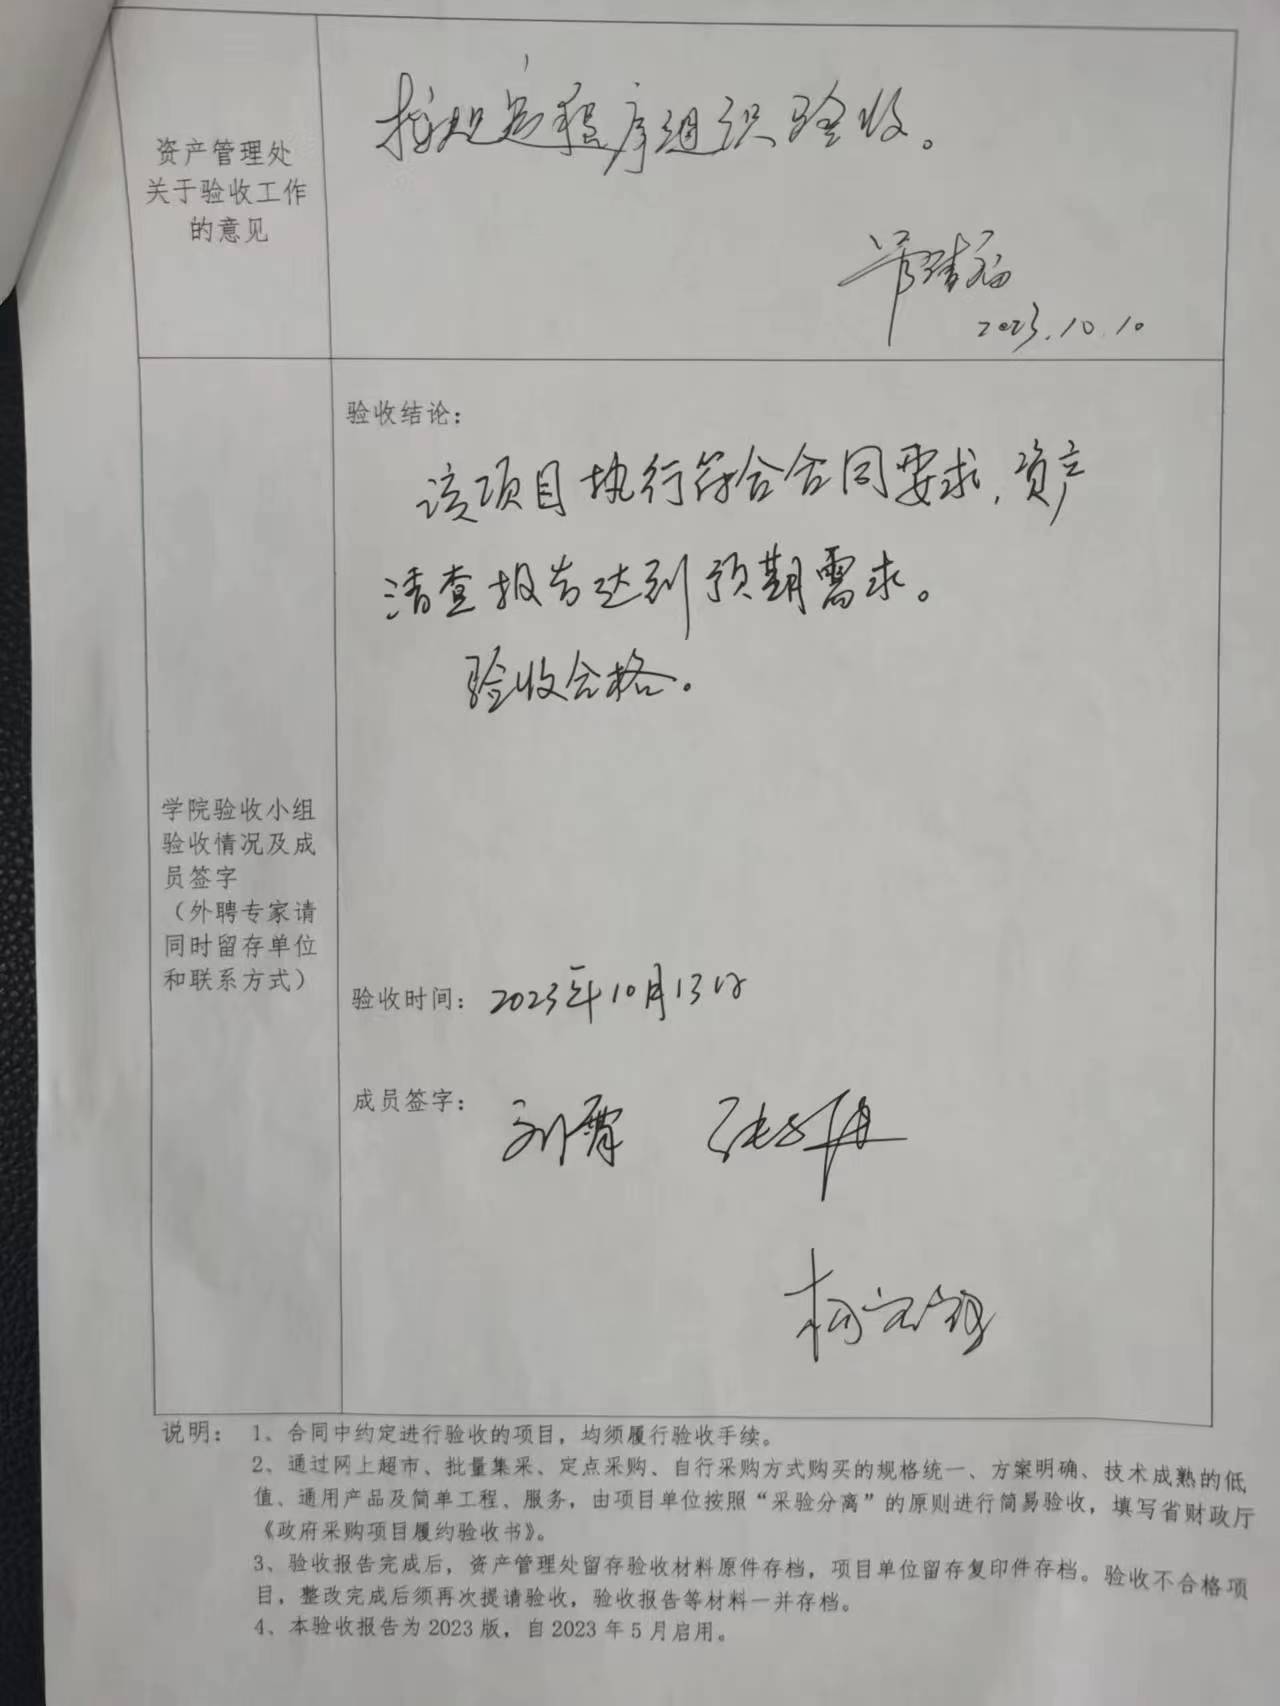 资产管理处
关于验收工作
的意见
按规定程序组织验收。
2023.10.10
验收结论：
该项目执行符合合同要求，资产
清查报告达到预期需求。
验收合格。
学院验收小组
验收情况及成
员签字
（外聘专家请
同时留存单位
和联系方式）
验收时间：2023年10月13日
成员签字：
说明：1、合同中约定进行验收的项目，均须履行验收手续。
2、通过网上超市、批量集采、定点采购、自行采购方式购买的规格统一、方案明确、技术成熟的低
值、通用产品及简单工程、服务，由项目单位按照“采验分离”的原则进行简易验收，填写省财政厅
《政府采购项目履约验收书》。
3、验收报告完成后，资产管理处留存验收材料原件存档，项目单位留存复印件存档。验收不合格项
目，整改完成后须再次提请验收，验收报告等材料一并存档。
4、本验收报告为2023版，自2023年5月启用。